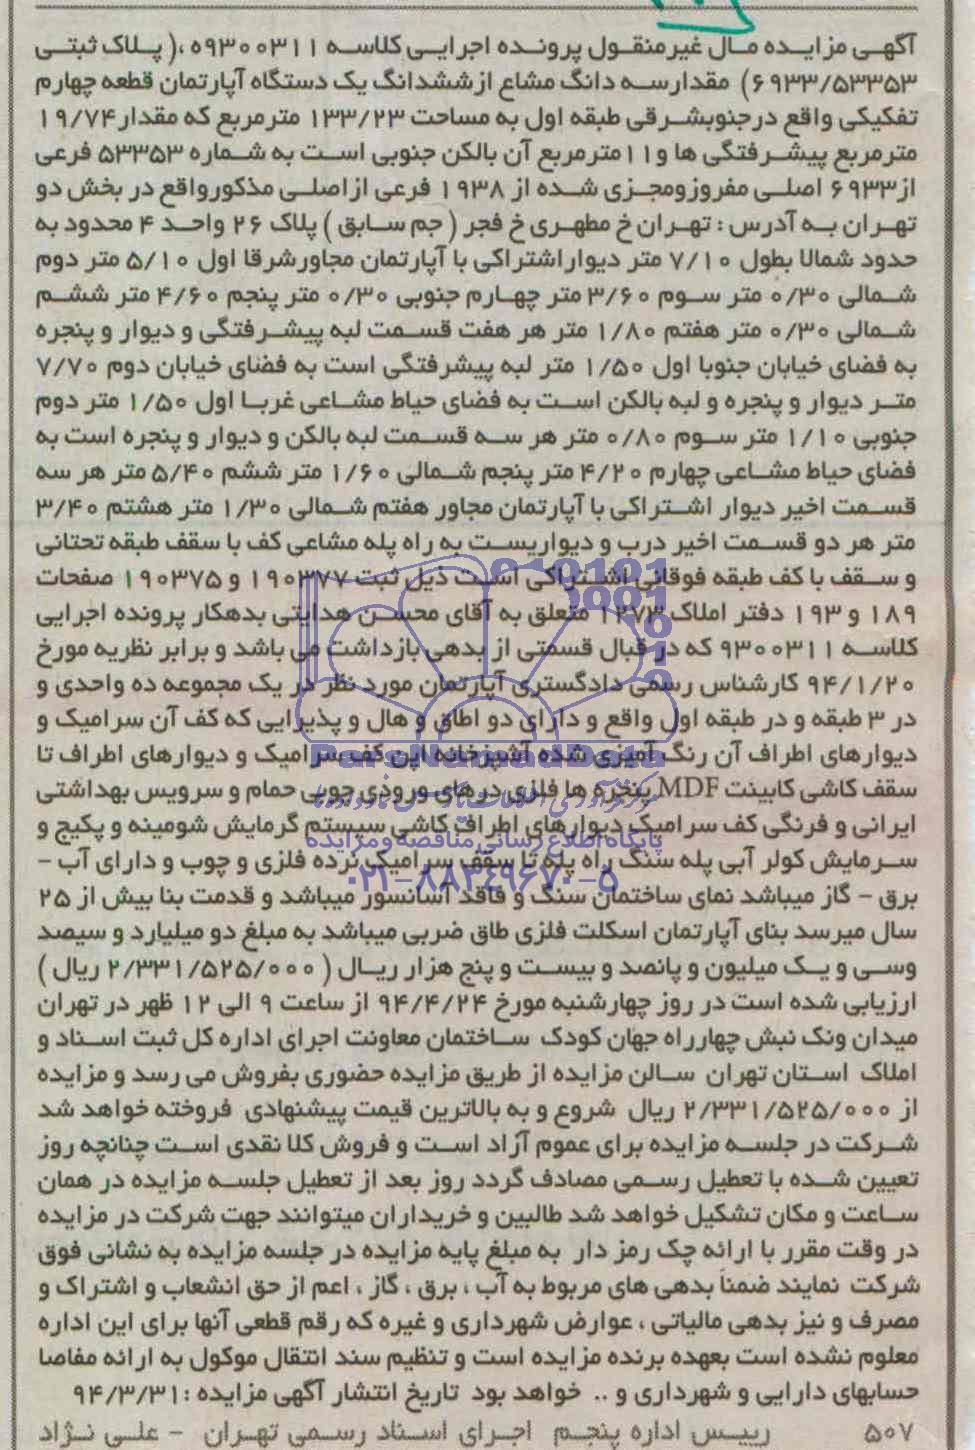 آگهی مزایده مال غیرمنقول پرونده اجرایی کلاسه ۹۳۰۰۳۱۱ه ،( پلاک ثبتی
۶۹۳۳/۵۳۳۵۳) مقدارسه دانگ مشاع ازششدانگ یک دستگاه آپارتمان قطعه چهارم
تفکیکی واقع درجنوبشرقی طبقه اول به مساحت ۱۳۳/۲۳ مترمربع که مقدار۱۹/۷۴
مترمربع پیشرفتگی ها و۱۱مترمربع آن بالکن جنوبی است به شماره ۵۳۳۵۳ فرعی
از۶۹۳۳ اصلی مفروزومجزی شده از ۱۹۳۸ فرعی ازاصلی مذکورواقع در بخش دو
تهران به آدرس : تهران خ مطهری خ فجر ( جم سابق ) پلاک ۲۶ واحد ۴ محدود به
حدود شمالا بطول ۷/۱۰ متر دیواراشتراکی با آپارتمان مجاورشرقا اول ۵/۱۰ متر دوم
شمالی ۰/۳۰ متر سوم ۳/۶۰ متر چهارم جنوبی ۰/۳۰ متر پنجم ۴/۶۰ متر ششم
شمالی ۰/۳۰ متر هفتم ۱/۸۰ متر هر هفت قسمت لبه پیشرفتگی و دیوار و پنجره
به فضای خیابان جنوبا اول ۱/۵۰ متر لبه پیشرفتگی است به فضای خیابان دوم ۷/۷۰
متر دیوار و پنجره و لبه بالکن است به فضای حیاط مشاعی غربا اول ۱/۵۰ متر دوم
جنوبی ۱/۱۰ متر سوم ۰/۸۰ متر هر سه قسمت لبه بالکن و دیوار و پنجره است به
فضای حیاط مشاعی چهارم ۴/۲۰ متر پنجم شمالی ۱/۶۰ متر ششم ۵/۴۰ متر هر سه
قسمت اخیر دیوار اشتراکی با آپارتمان مجاور هفتم شمالی ۱/۳۰ متر هشتم ۳/۴۰
متر هر دو قسمت اخیر درب و دیواریست به راه پله مشاعی کف با سقف طبقه تحتانی
و سقف با کف طبقه فوقانی اشتراکی است ذیل ثبت ۱۹۰۳۷۷ و ۱۹۰۳۷۵ صفحات
۱۸۹ و ۱۹۳ دفتر املاک ۱۲۷۳ متعلق به آقای محسن هدایتی بدهکار پرونده اجرایی
کلاسه ۹۳۰۰۳۱۱ که در قبال قسمتی از بدهی بازداشت می باشد و برابر نظریه مورخ
۹۴/۱/۲۰ کارشناس رسمی دادگستری آپارتمان مورد نظر در یک مجموعه ده واحدی و
در ۳ طبقه و در طبقه اول واقع و دارای دو اطاق و هال و پذیرایی که کف آن سرامیک و
دیوارهای اطراف آن رنگ آمیزی شده آشپزخانه اپن کف سرامیک و دیوارهای اطراف تا
سقف کاشی کابینت MDF پنجره ها فلزی درهای ورودی چوبی حمام و سرویس بهداشتی
ایرانی و فرنگی کف سرامیک دیوارهای اطراف کاشی سیستم گرمایش شومینه و پکیج و
سرمایش کولر آبی پله سنگ راه پله تا سقف سرامیک نرده فلزی و چوب و دارای آب -
برق - گاز میباشد نمای ساختمان سنگ و فاقد آسانسور میباشد و قدمت بنا بیش از ۲۵
سال میرسد بنای آپارتمان اسکلت فلزی طاق ضربی میباشد به مبلغ دو میلیارد و سیصد
وسی و یک میلیون و پانصد و بیست و پنج هزار ریال ( ۲/۳۳۱/۵۲۵/۰۰۰ ریال )
ارزیابی شده است در روز چهارشنبه مورخ ۹۴/۴/۲۴ از ساعت ۹ الی ۱۲ ظهر در تهران
میدان ونک نبش چهارراه جهان کودک ساختمان معاونت اجرای اداره کل ثبت اسناد و
املاک استان تهران سالن مزایده از طریق مزایده حضوری بفروش می رسد و مزایده
از ۲/۳۳۱/۵۲۵/۰۰۰ ریال شروع و به بالاترین قیمت پیشنهادی فروخته خواهد شد
شرکت در جلسه مزایده برای عموم آزاد است و فروش کلا نقدی است چنانچه روز
تعیین شده با تعطیل رسمی مصادف گردد روز بعد از تعطیل جلسه مزایده در همان
ساعت و مکان تشکیل خواهد شد طالبین و خریداران میتوانند جهت شرکت در مزایده
در وقت مقرر با ارائه چک رمز دار به مبلغ پایه مزایده در جلسه مزایده به نشانی فوق
شرکت نمایند ضمناً بدهی های مربوط به آب ، برق ، گاز ، اعم از حق انشعاب و اشتراک و
مصرف و نیز بدهی مالیاتی ، عوارض شهرداری و غیره که رقم قطعی آنها برای این اداره
معلوم نشده است بعهده برنده مزایده است و تنظیم سند انتقال موکول به ارائه مفاصا
حسابهای دارایی و شهرداری و .. خواهد بود تاریخ انتشار آگهی مزایده : ۹۴/۳/۳۱
۵۰۷ رییس اداره پنجم اجرای اسناد رسمی تهران - علی نژاد
ParsNamadData
پایگاه اطلاع رسانی مناقصه و مزایده
۰۲۱-۸۸۳۴۹۶۷۰-۵